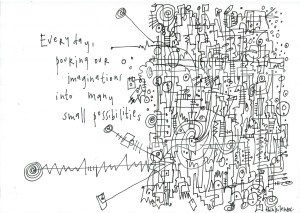 Everyday,
pouring our
imaginations
into many
small possibilities